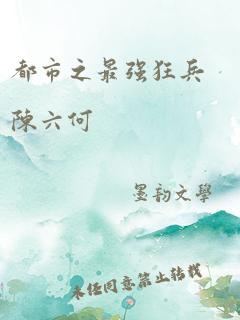 都市之最强狂兵
陳六何
墨韵文學
未经同意禁止转载